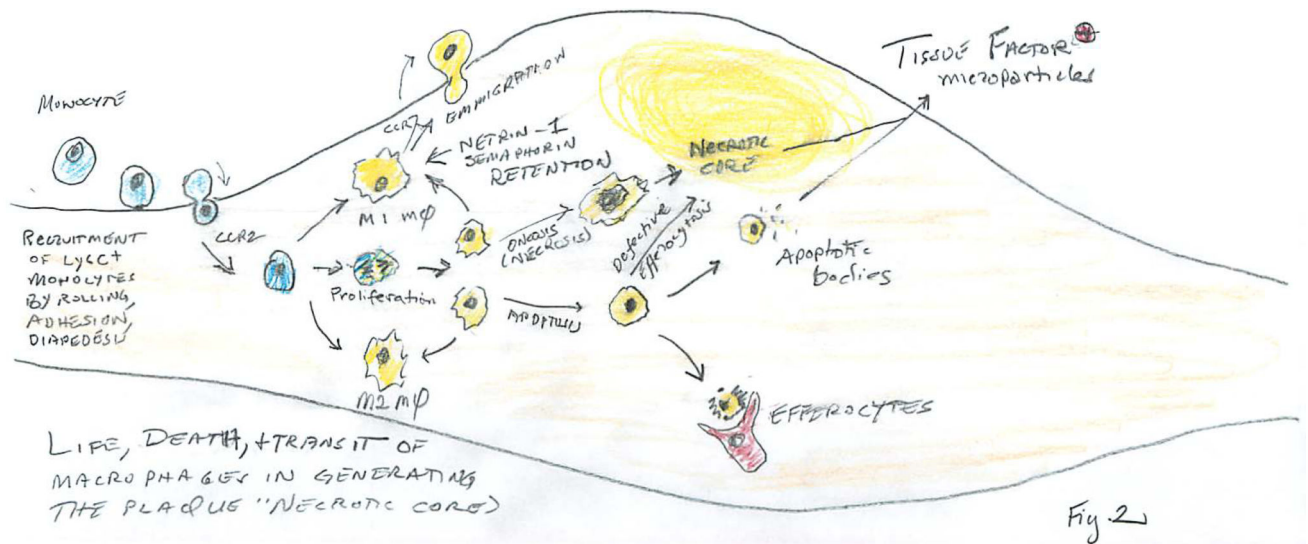 MONOCYTE
RECRUITMENT
OF Ly6C+
MONOCYTES
BY ROLLING,
ADHESION,
DIAPEDESIS
CCR2
CCR7
EMMIGRATION
NETRIN-1
SEMAPHORIN
RETENTION
M1 Mφ
Proliferation
M2 Mφ
ONCOSIS
(NECROSIS)
APOPTOSIS
Defective
Efferocytosis
NECROTIC
CORE
TISSUE FACTOR
microparticles
Apoptotic
bodies
EFFEROCYTES
LIFE, DEATH, + TRANSIT OF
MACROPHAGES IN GENERATING
THE PLAQUE "NECROTIC CORE)
Fig. 2